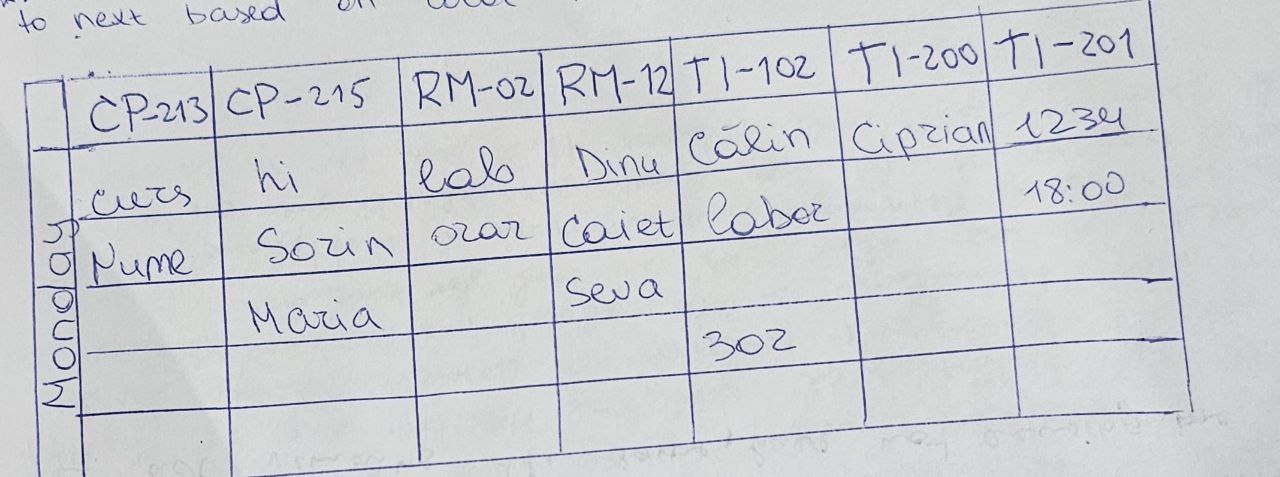 to next based on
CP-213 CP-215 RM-02 RM-12 TI-102 TI-200 TI-201
Monday
curs hi lab Dinu Călin Ciprian 1234
Nume Sorin orar caiet labor 18:00
Maria Seva
302